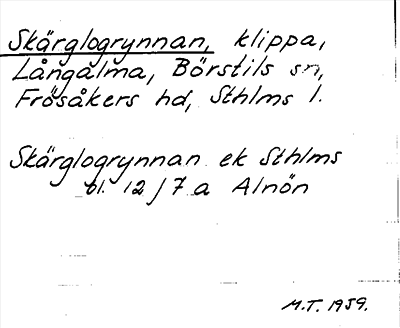 Skärglogrynnan, klippa,
Långalma, Börstils sn,
Frösåkers hd, Sthlms l.
Skärglogrynnan ek Sthlms
bl. 12 j 7 a Alnön
M.T. 1959.